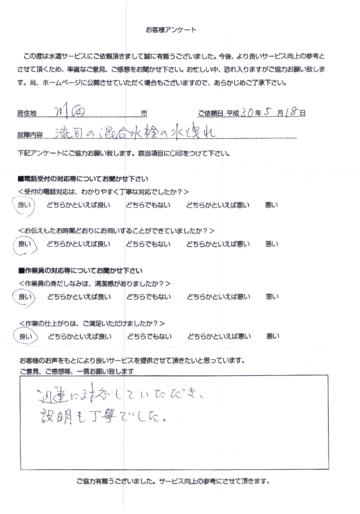 お客様アンケート
この度は水道サービスにご依頼頂きまして誠に有難うございました。今後、より良いサービス向上の参考と
させて頂くため、率直なご意見、ご感想をお聞かせ下さい。お忙しい中、恐れ入りますがご協力お願い致しま
す。尚、ホームページに公開させていただく場合もございますので、あらかじめご了承下さい。
居住地 川西 市 ご依頼日 平成 30年 5月 18日
故障内容 流司の混合水栓の水洩れ
下記アンケートにご協力お願い致します。該当項目に〇印をつけて下さい。
■電話受付の対応等についてお聞かせ下さい
<受付の電話対応は、わかりやすく丁寧な対応でしたか?>
良い どちらかといえば良い どちらでもない どちらかといえば悪い 悪い
<お伝えもたお時間どおりにお伺いすることができていましたか?>
良い どちらかといえば良い どちらでもない どちらかといえば悪い 悪い
■作業員の対応等についてお聞かせ下さい
<作業員の身だしなみは、清潔感がありましたか?>
良い どちらかといえば良い どちらでもない どちらかといえば悪い 悪い
<作業の仕上がりは、ご満足いただけましたか?>
良い どちらかといえば良い どちらでもない どちらかといえば悪い 悪い
お客様のお声をもとにより良いサービスを提供させて頂きたいと思っています。
ご意見、ご感想等、一言お願い致します
迅速に対応していただき、
説明も丁寧でした。
ご協力有難うございました。サービス向上の参考にさせて頂きます。